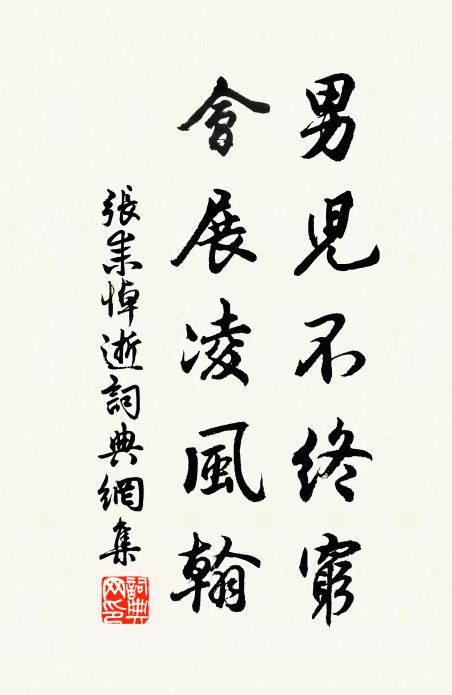 男兒不終窮
會展凌風翰
張耒悼逝詞典網集
詞典網印